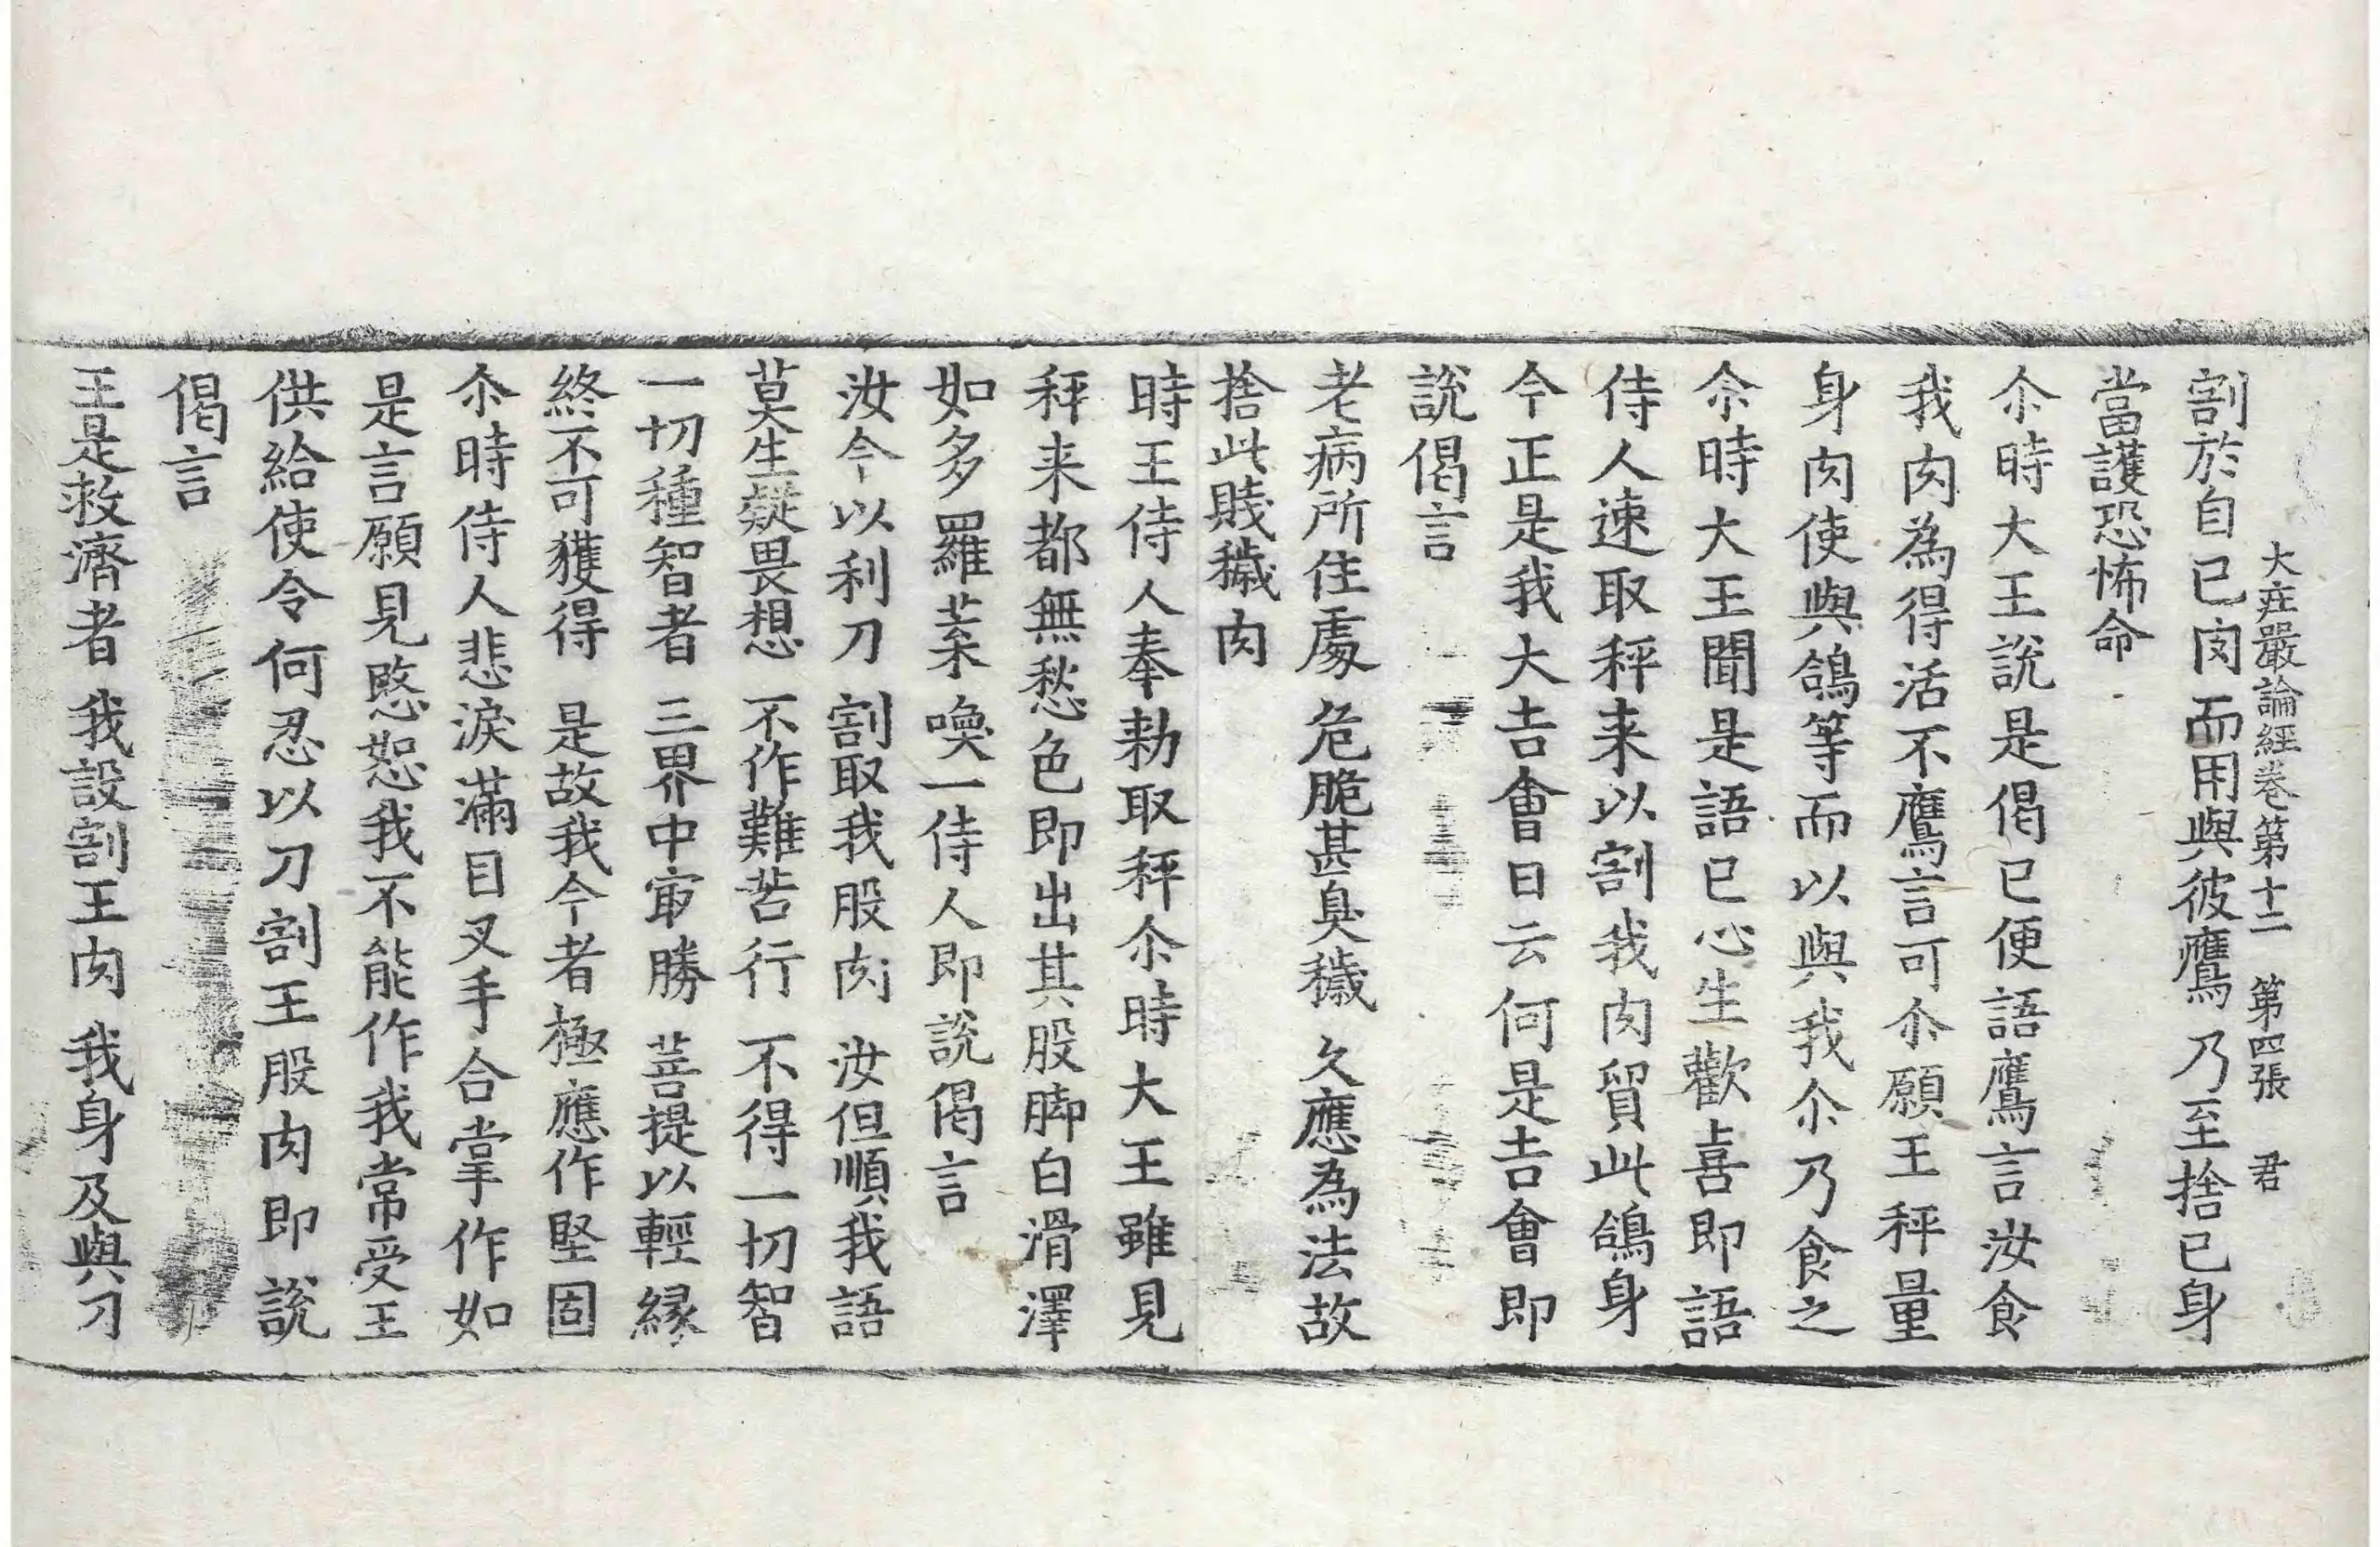 大庄嚴論經卷第十二 第四張 君
割於自已肉 而用與彼鷹 乃至捨已身
當護恐怖命
尒時大王說是偈已便語鷹言汝食
我肉為得活不鷹言可尒願王秤量
身肉使與鴿等而以與我尒乃食之
尒時大王聞是語已心生歡喜即語
侍人速取秤来以割我肉貿此鴿身
今正是我大吉會日云何是吉會即
說偈言
老病所住處 危脆甚臭穢 久應為法故
捨此賤穢肉
時王侍人奉勑取秤尒時大王雖見
秤来都無愁色即出其股脚白滑澤
如多羅葉喚一侍人即說偈言
汝今以利刀 割取我股肉 汝但順我語
莫生疑畏想 不作難苦行 不得一切智
一切種智者 三界中㝡勝 菩提以輕緣
終不可獲得 是故我今者 極應作堅固
尒時侍人悲淚滿目叉手合掌作如
是言願見愍恕我不能作我常受王
供給使令何忍以刀割王股肉即說
偈言
王是救濟者 我設割王肉 我身及與刀